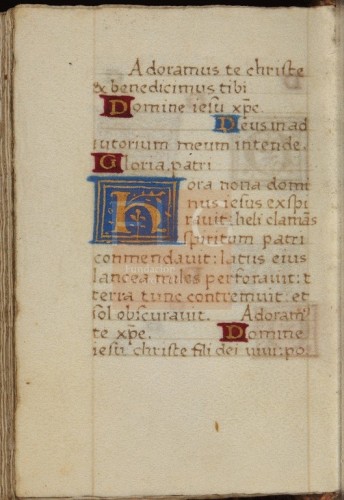 Adoramus te christe
& benedicimus tibi
Domine iesu xp̄e
Deus in ad
iutorium meum intende.
Gloria, patri
hora nona domi
nus iesus expi
rauit: heli clamās
spiritum patri
commendauit: latus eius
lancea miles perforauit: t
terra tunc contremuit: et
sol obscurauit. Adoram᾽
te xp̄e. Domine
iesu christe fili dei viui: po